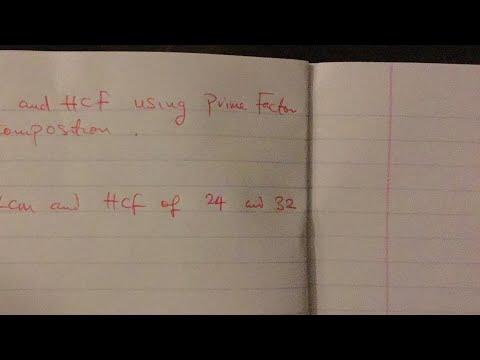 and HCF using Prime Factor
composition.
Lcm and HCF of 24 and 32